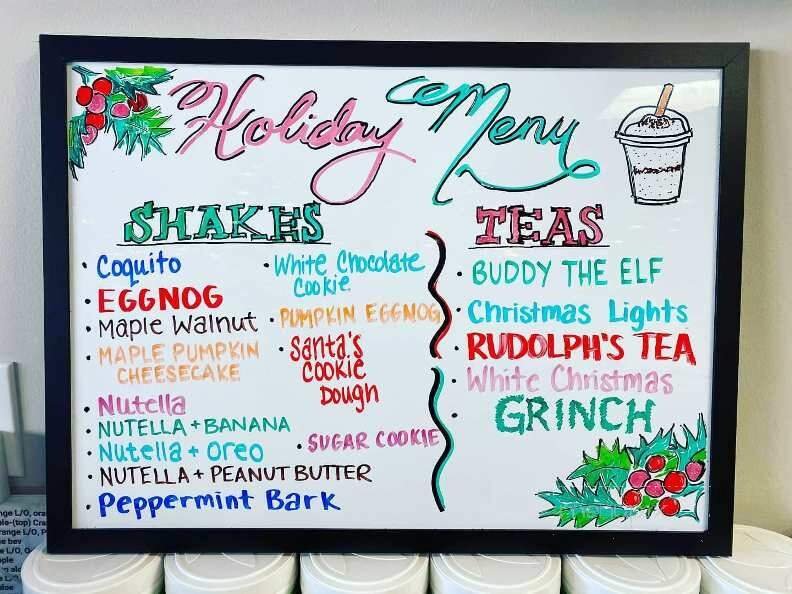 Holiday Menu
SHAKES
• Coquito
• EGGNOG
• Maple Walnut
• MAPLE PUMPKIN
CHEESECAKE
• Nutella
• NUTELLA + BANANA
• Nutella + Oreo
• NUTELLA + PEANUT BUTTER
• Peppermint Bark
• White Chocolate
Cookie
• PUMPKIN EGGNOG
• Santa's
COOKIE
DOUGH
• SUGAR COOKIE
TEAS
• BUDDY THE ELF
• Christmas Lights
• RUDOLPH'S TEA
• White Christmas
• GRINCH